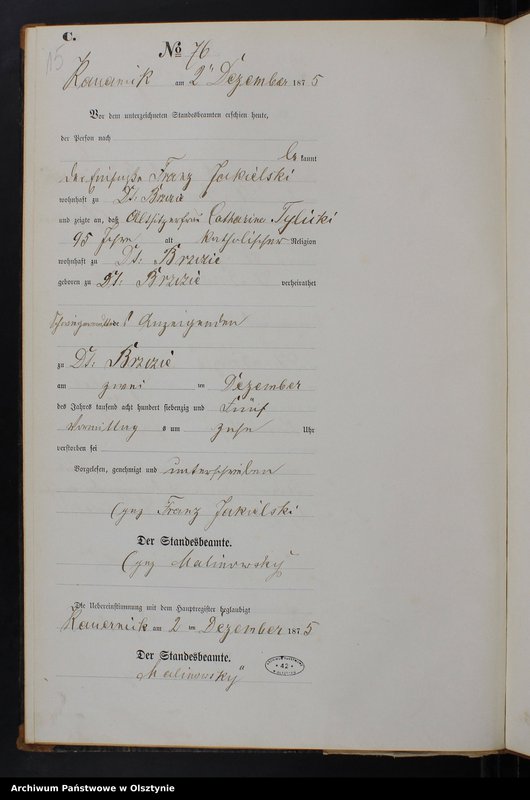 C.
15
No 76
Kauernik am 2ten Dezember 1875
Vor dem unterzeichneten Standesbeamten erschien heute,
der Person nach
be kannt
der Einsasse Franz Jakielski
wohnhaft zu Dt: Brzozie
und zeigte an, daß Altsitzerfrau Catharina Tylicki
95 Jahre alt katholischer Religion
wohnhaft zu Dt: Brzozie
geboren zu Dt: Brzozie verheirathet
Schwiegermutter des Anzeigenden
zu Dt: Brzozie
am zwei ten Dezember
des Jahres tausend acht hundert siebenzig und Fünf
Vormittag s um zehn Uhr
verstorben sei
Vorgelesen, genehmigt und unterschrieben
(gez Franz Jakielski
Der Standesbeamte.
(gez Malinowsky
Die Uebereinstimmung mit dem Hauptregister beglaubigt
Kauernik am 2 ten Dezember 1875
Der Standesbeamte.
Malinowsky
42
Archiwum Państwowe w Olsztynie